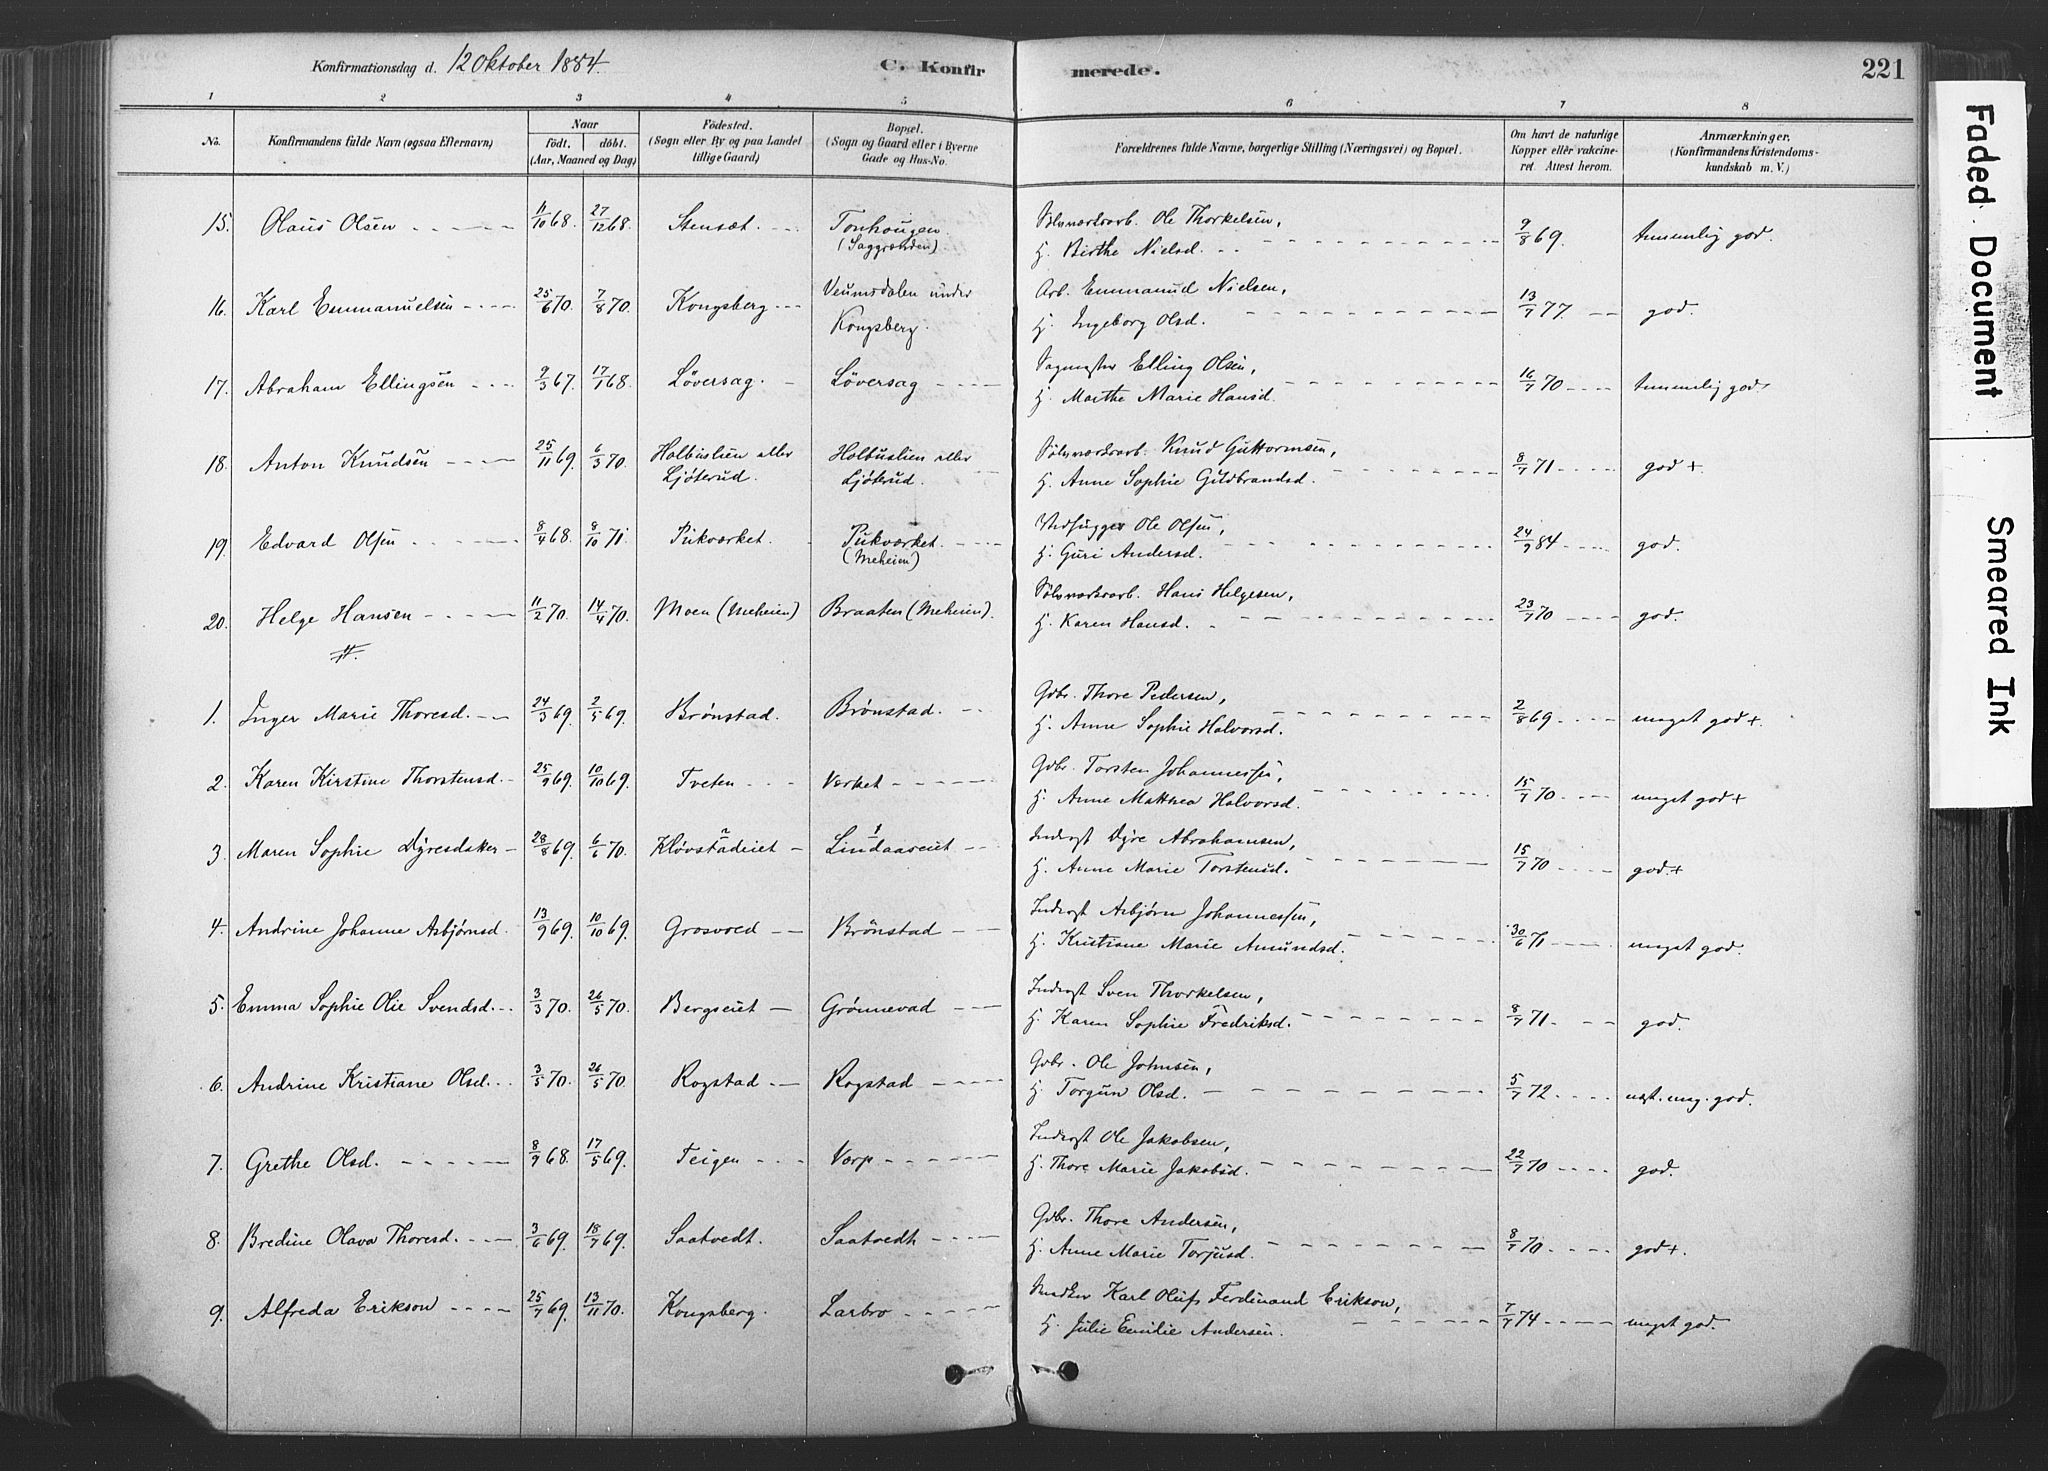 Konfirmationsdag d. 12 Oktober 1884. C. Konfirmerede. 221
1 2 3 4 5 6 7 8
No. Konfirmandens fulde Navn (ogsaa Efternavn) Naar født. døbt. (Aar, Maaned og Dag) Fødested. (Sogn eller By og paa Landet tillige Gaard) Bopæl. (Sogn og Gaard eller i Byerne Gade og Hus-No. Forældrenes fulde Navne, borgerlige Stilling (Næringsvei) og Bopæl. Om havt de naturlige Kopper eller vakcineret. Attest herom. Anmærkninger. (Konfirmandens Kristendomskundskab m. V.)
15. Olaus Olsen 11/10 68. 27/12 68. Stensæt. Tonhougen (Saggrænden). Sølvværksarb. Ole Thorkelsen, H. Birthe Nielsd. 9/8 69. temmelig god.
16. Karl Emmanuelsen 25/6 70. 7/8 70. Kongsberg Veumsdalen under Kongsberg. Arb. Emmanuel Nielsen, H. Ingeborg Olsd. 13/7 77 god.
17. Abraham Ellingsen 2/3 67. 17/1 68. Løversag. Løversag Sagmester Elling Olsen, H. Marthe Marie Hansd. 16/7 70 temmelig god+
18. Anton Knudsen 25/11 69. 6/3 70. Holbuslien eller Ljøterud. Holbuslien eller Ljøterud. Sølvværksarb. Knud Guttormsen, H. Anne Sophie Guldbrandsd. 8/7 71 god +
19. Edvard Olsen 8/4 68. 8/10 71. Pukværket. Pukværket. (Meheien) Vedhugger Ole Olsen, H. Guri Andersd. 24/9 84 god.
20. Helge Hansen 11/2 70. 14/4 70. Moen (Meheien) Braaten (Meheien). Sølvværksarb. Hans Helgesen, H. Karen Hansd. 23/7 70 god.
1. Inger Marie Thoresd. 24/3 69. 2/5 69. Brønstad. Brønstad. Gdbr. Thore Pedersen, H. Anne Sophie Halvorsd. 2/8 69 meget god +.
2. Karen Kirstine Thorstensd. 25/9 69. 10/10 69. Tveten Værket Gdbr. Torsten Johannessen, H. Anne Mathea Halvorsd. 15/7 70 meget god +
3. Maren Sophie Dyresdatter 28/8 69. 6/6 70. Kløvstadeiet Lindaaseiet Inderst Dyre Abrahamsen, H. Anne Marie Torstensd. 15/7 70 god.+
4. Andrine Johanne Asbjørnsd. 13/9 69. 10/10 69. Grosvold Brønstad Inderst Asbjørn Johannessen, H. Kristiane Marie Amundsd. 30/6 71 meget god.
5. Emma Sophie Olie Svendsd. 3/3 70. 26/5 70. Bergseiet Grønnevad Inderst Sven Thorkelsen, H. Karen Sophie Fredriksd. 8/7 71. god.
6. Andrine Kristiane Olsd. 3/5 70. 26/5 70. Rogstad Rogstad Gdbr. Ole Johnsen, H. Torgun Olsd. 5/7 72 næst. meg. god.
7. Grethe Olsd. 8/9 68. 17/5 69. Teigen Vorp Inderst Ole Jakobsen, H. Thore Marie Jakobsd. 22/7 70 god.
8. Bredine Olava Thoresd. 3/6 69. 18/7 69. Saatvedt. Saatvedt Gdbr. Thore Andersen, H. Anne Marie Torjusd. 8/7 70 god+.
9. Alfreda Erikson 25/7 69. 13/11 70. Kongsberg. Larbro Snedker Karl Olufs Ferdinand Erikson, H. Julie Emilie Andersen. 7/7 74 meget god.
Faded Document
Smeared Ink